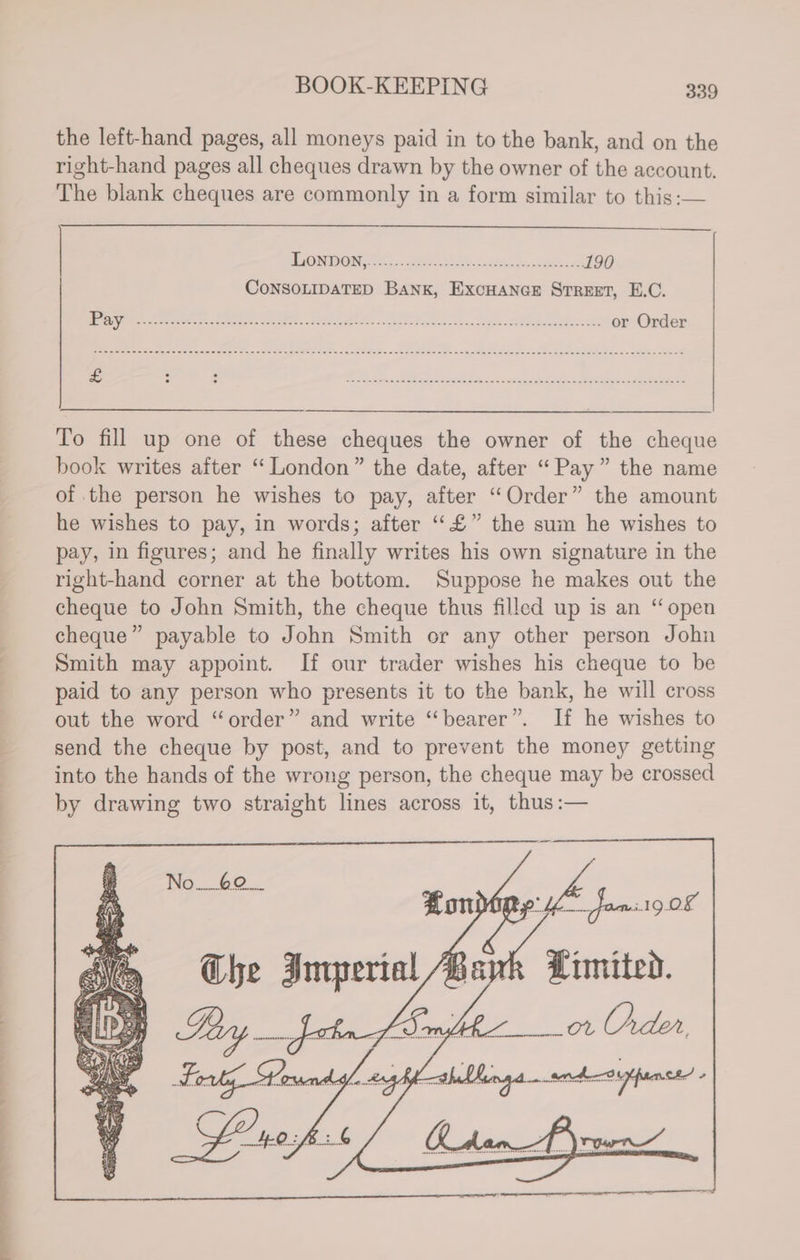 BOOK-KEEPING 339
the left-hand pages, all moneys paid in to the bank, and on the
right-hand pages all cheques drawn by the owner of the account.
The blank cheques are commonly in a form similar to this:—
LONDON,.................................................190
CONSOLIDATED BANK, EXCHANGE STREET, E.C.
Pay ........................................................................ or Order
£ : :
To fill up one of these cheques the owner of the cheque
book writes after “London” the date, after “Pay” the name
of the person he wishes to pay, after “Order” the amount
he wishes to pay, in words; after “£” the sum he wishes to
pay, in figures; and he finally writes his own signature in the
right-hand corner at the bottom. Suppose he makes out the
cheque to John Smith, the cheque thus filled up is an “open
cheque” payable to John Smith or any other person John
Smith may appoint. If our trader wishes his cheque to be
paid to any person who presents it to the bank, he will cross
out the word “order” and write “bearer”. If he wishes to
send the cheque by post, and to prevent the money getting
into the hands of the wrong person, the cheque may be crossed
by drawing two straight lines across it, thus:—
No. 60
London, 4th Jan. 1908
& Co
The Imperial Bank Limited.
Pay John Smith or Order,
Forty Pounds, eight shillings and sixpence
£40:8:6 Adam Brown